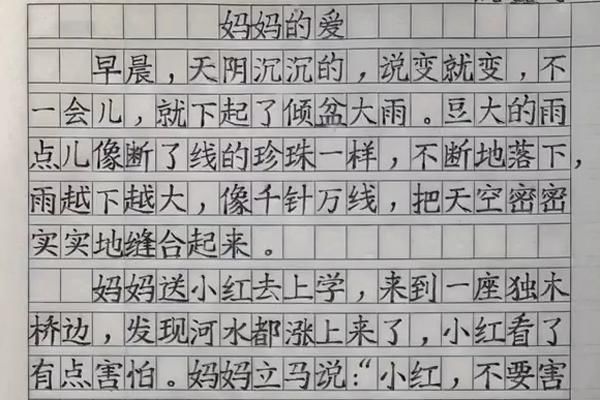 妈妈的爱
早晨，天阴沉沉的，说变就变，不
一会儿，就下起了倾盆大雨。豆大的雨
点儿像断了线的珍珠一样，不断地落下，
雨越下越大，像千针万线，把天空密密
实实地缝合起来。
妈妈送小红去上学，来到一座独木
桥边，发现河水都涨上来了，小红看了
有点害怕。妈妈立马说：“小红，不要害